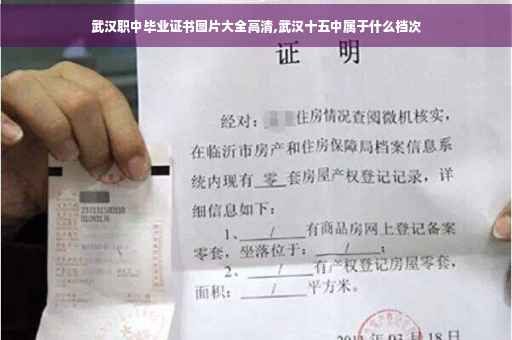 武汉职中毕业证书图片大全高清,武汉十五中属于什么档次
证 明
经对: 住房情况查阅微机核实,
在临沂市房产和住房保障局档案信息系
统内现有 零 套房屋产权登记记录,详
细信息如下:
1、 / 有商品房网上登记备案
零套,坐落位于: / ;
2、 / 有产权登记房屋零套,
面积: / 平方米。
03月18日